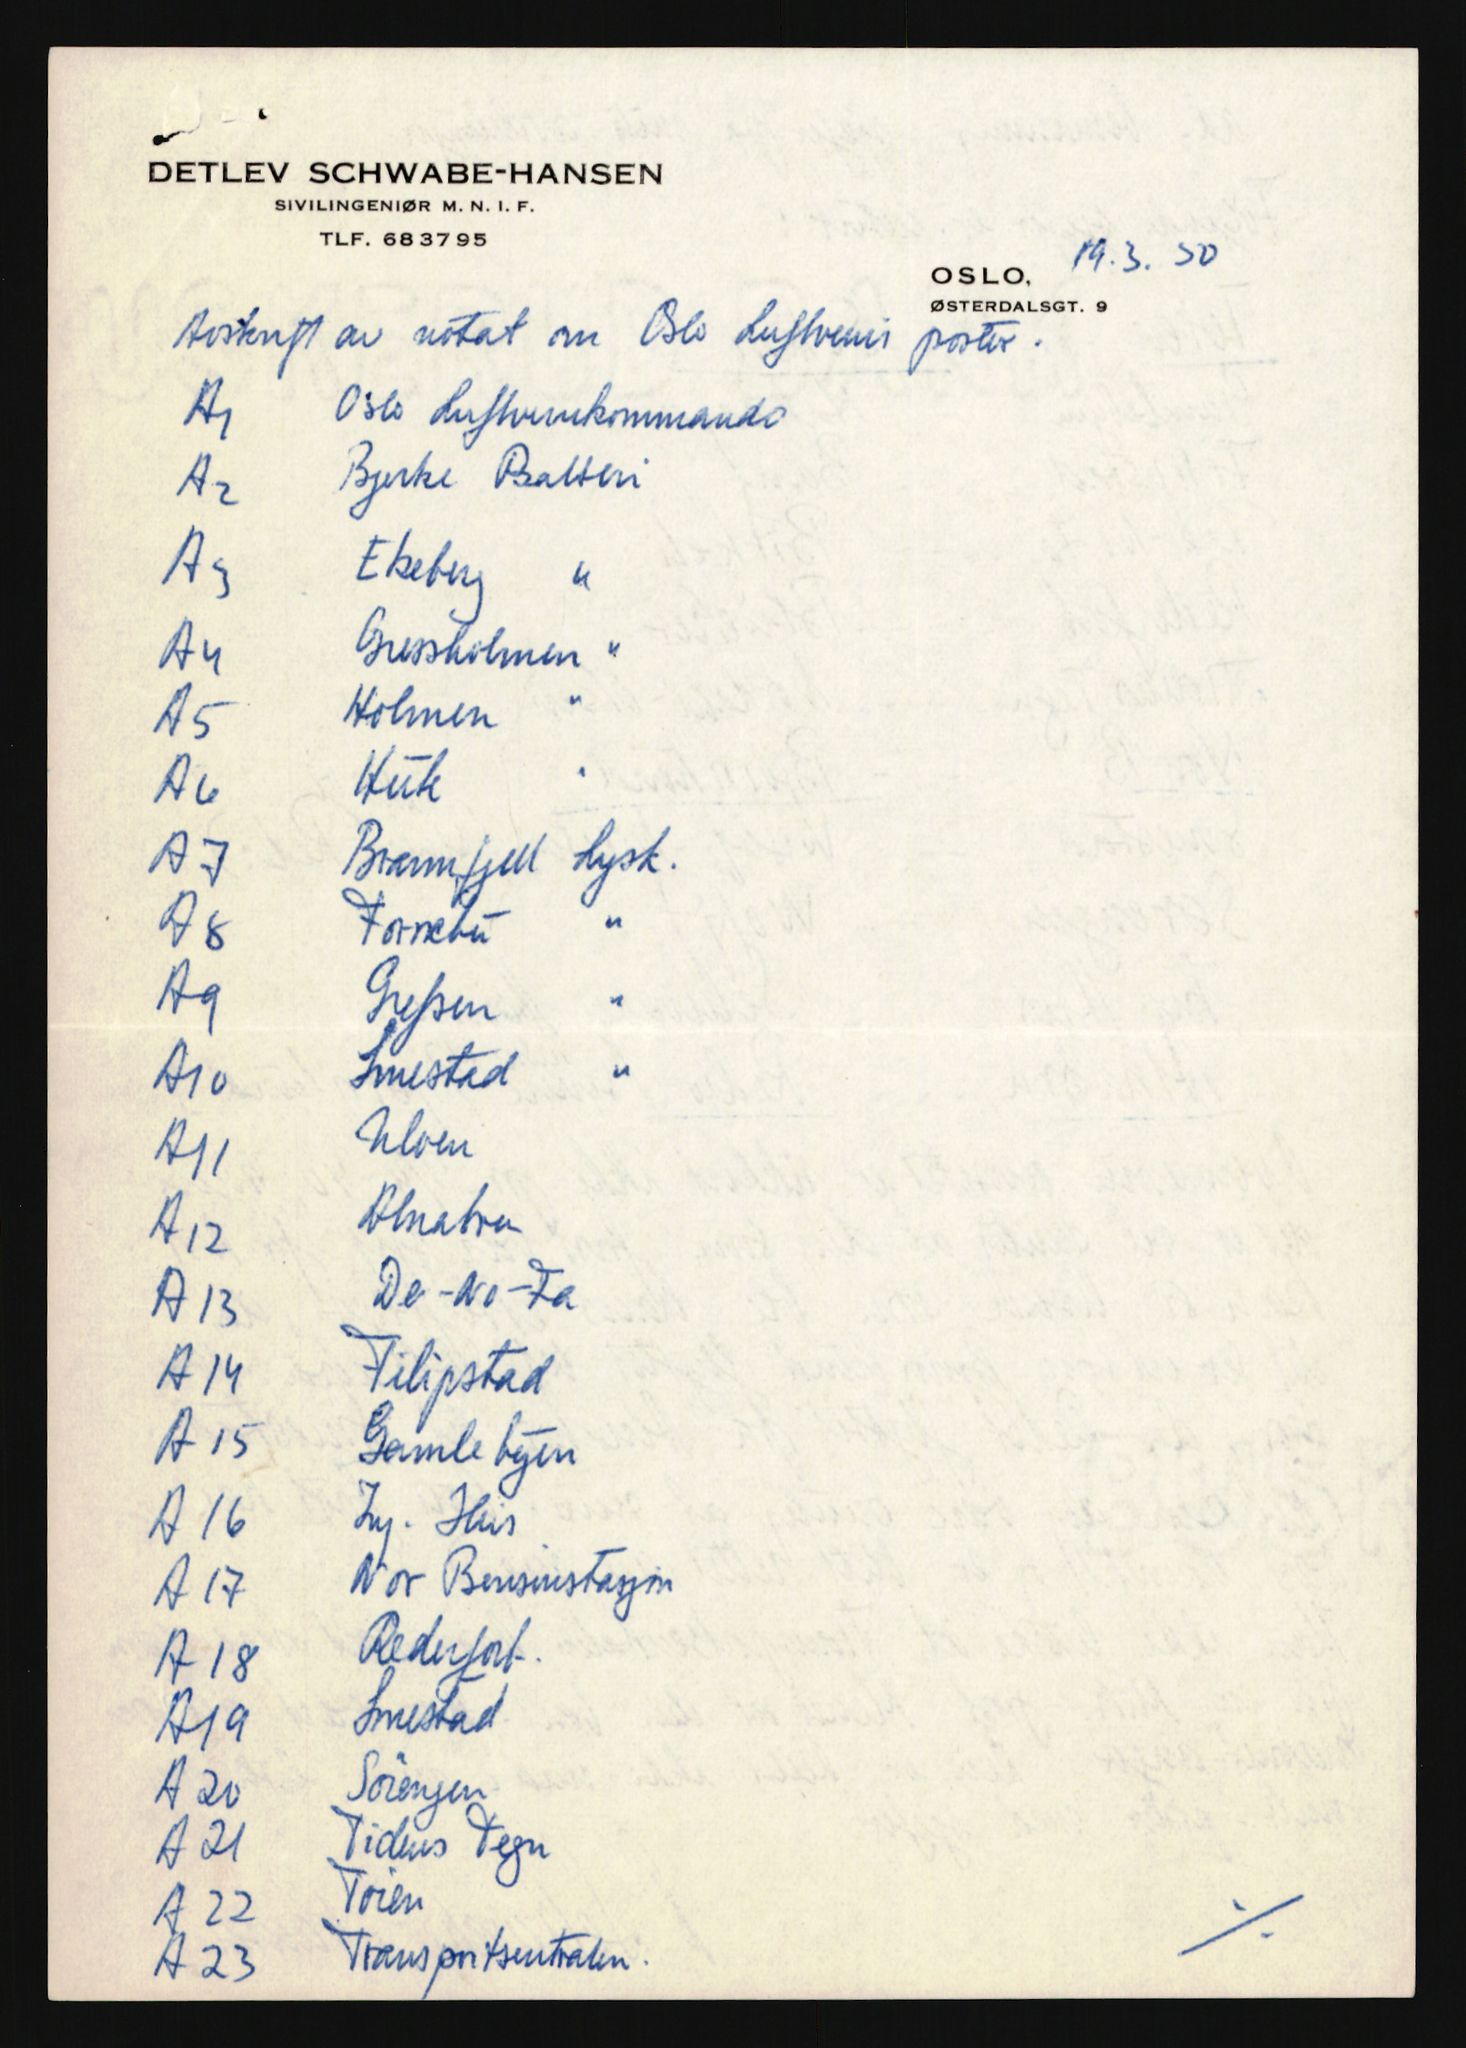 DETLEV SCHWABE-HANSEN
SIVILINGENIØR M. N. I. F.
TLF. 683795
OSLO, 19.3.50
ØSTERDALSGT. 9
Avskrift av notat om Oslo Luftverns poster.
A1 Oslo Luftvernkommando
A2 Bjerke Batteri
A3 Ekeberg "
A4 Gressholmen "
A5 Holmen "
A6 Huk "
A7 Brannfjell Lysk.
A8 Fornebu "
A9 Grefsen "
A10 Smestad "
A11 Uloen
A12 Alnabru
A13 De-No-Fa
A14 Filipstad
A15 Gamlebyen
A16 Ing. Hus
A17 Nor Bensinstasjon
A18 Rederforb.
A19 Smestad
A20 Sørengen
A21 Tidens Tegn
A22 Tøien
A23 Transportsentralen.
./.